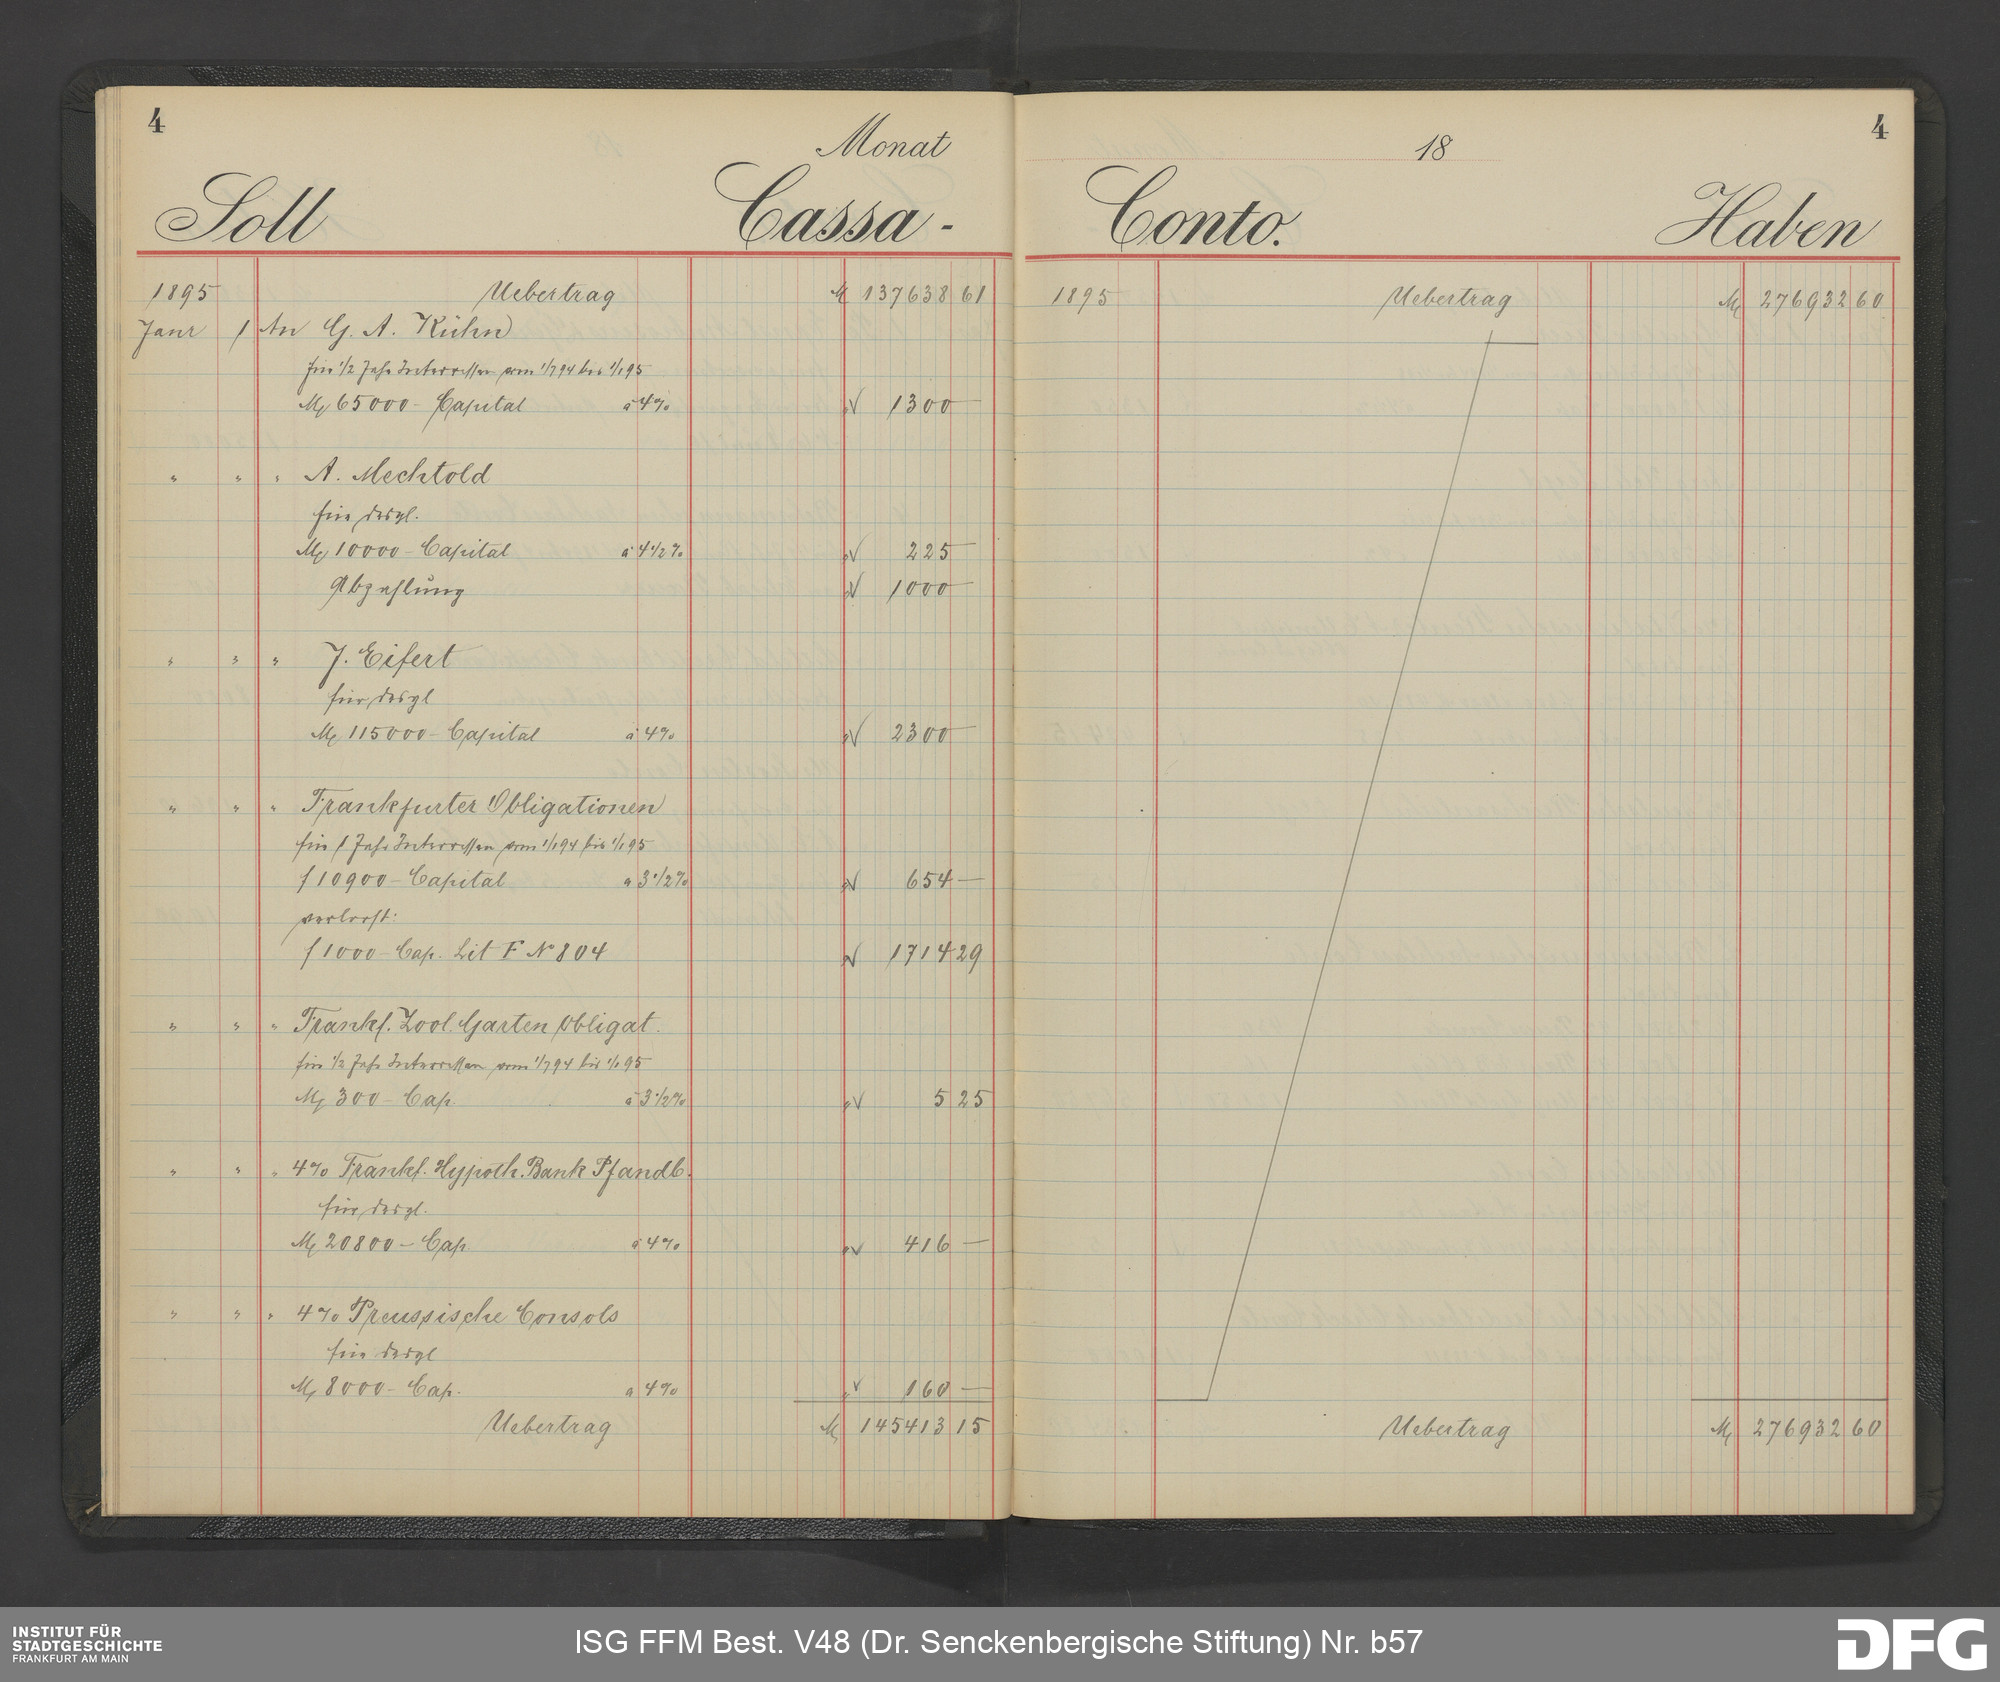 4
Monat
Soll
Cassa -
1895 Uebertrag M 137638 61
Janr 1 An G. A. Kühn
für 1/2 Jahr Interessen vom 1/7 94 bis 1/1 95
M 65000 – Capital à 4% 1300 —
" " " A. Mechtold
für desgl.
M 10000 – Capital à 4 1/2% 225 —
Abzahlung 1000 —
" " " J. Eifert
für desgl
M 115000 – Capital à 4% 2300 —
" " " Frankfurter Obligationen
für 1 Jahr Interessen vom 1/1 94 bis 1/1 95
f 10900 – Capital à 3 1/2% 654 —
verloost:
f 1000 – Cap. Lit F No 804 1714 29
" " " Frankf. Zool. Garten Obligat.
für 1/2 Jahr Interessen vom 1/7 94 bis 1/1 95
M 300 – Cap. à 3 1/2% 5 25
" " " 4% Frankf. Hypoth. Bank Pfandb.
für desgl.
M 20800 – Cap. à 4% 416 —
" " " 4% Preussische Consols
für desgl
M 8000 – Cap. à 4% 160 —
Uebertrag M 145413 15
4
18
Conto.
Haben
1895 Uebertrag M 276932 60
Uebertrag M 276932 60
INSTITUT FÜR
STADTGESCHICHTE
FRANKFURT AM MAIN
ISG FFM Best. V48 (Dr. Senckenbergische Stiftung) Nr. b57
DFG